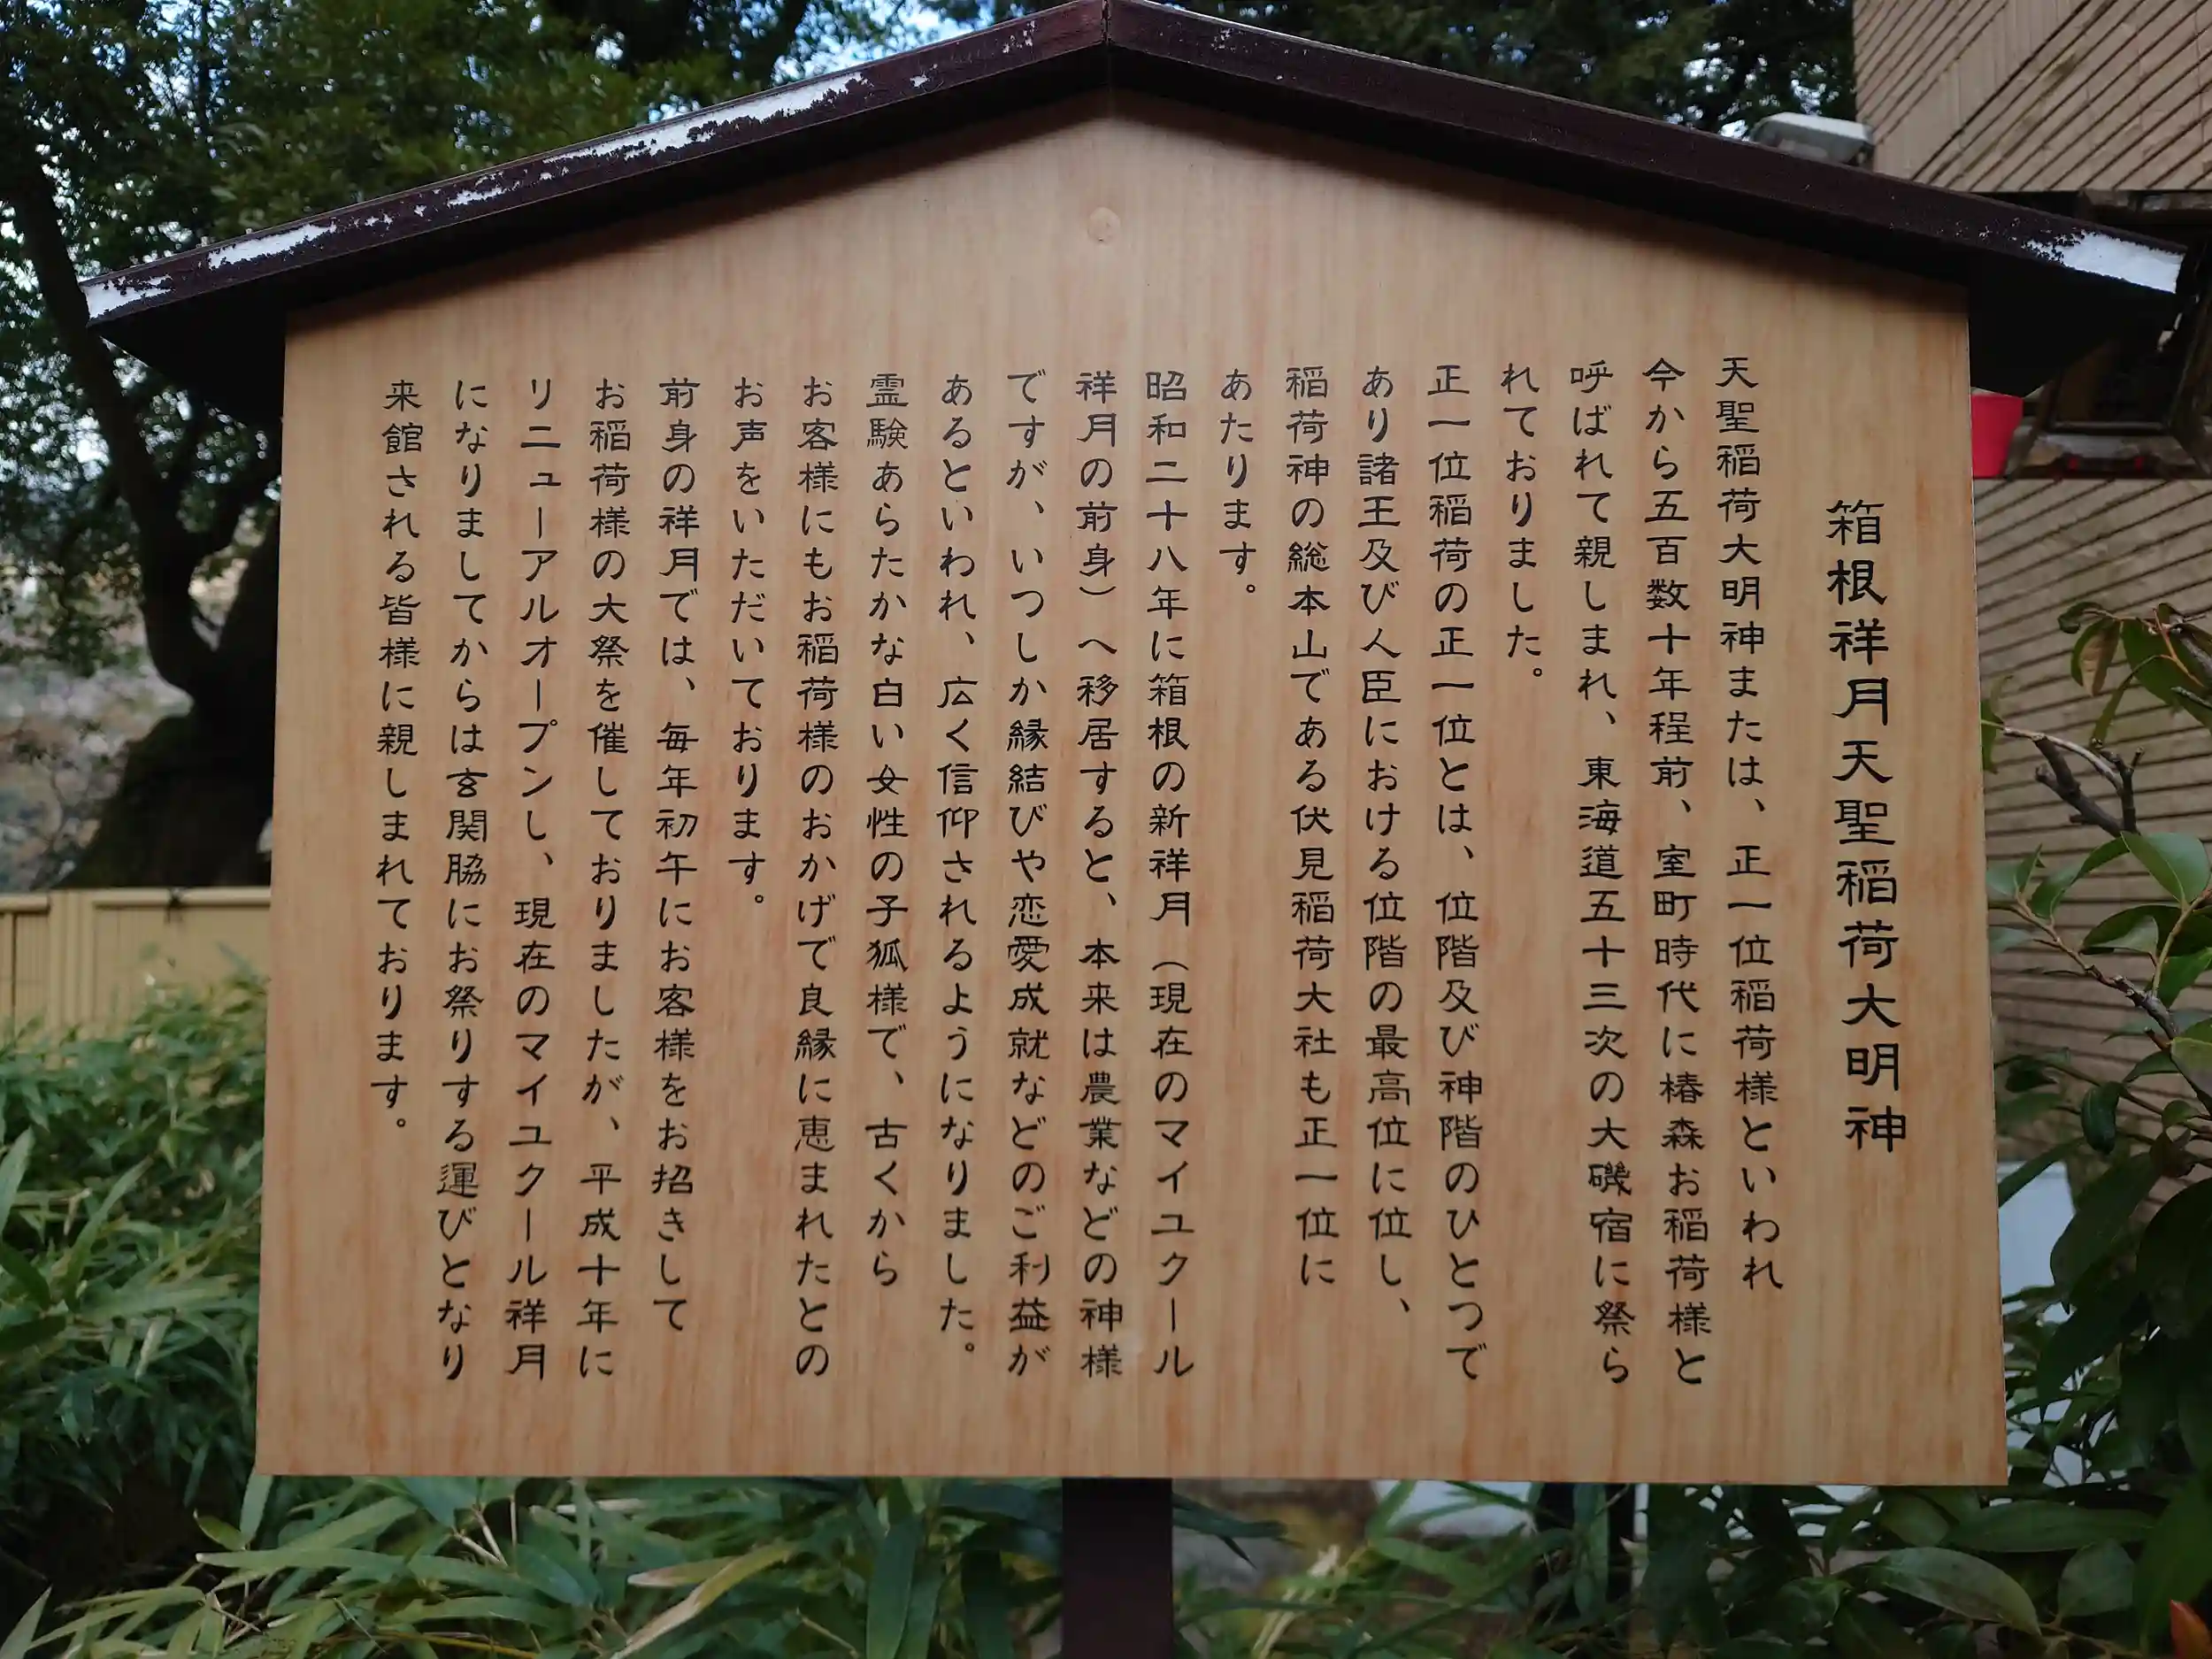 箱根祥月天聖稲荷大明神
天聖稲荷大明神または、正一位稲荷様といわれ
今から五百数十年程前、室町時代に椿森お稲荷様と
呼ばれて親しまれ、東海道五十三次の大磯宿に祭ら
れておりました。
正一位稲荷の正一位とは、位階及び神階のひとつで
あり諸王及び人臣における位階の最高位に位し、
稲荷神の総本山である伏見稲荷大社も正一位に
あたります。
昭和二十八年に箱根の新祥月（現在のマイユクール
祥月の前身）へ移居すると、本来は農業などの神様
ですが、いつしか縁結びや恋愛成就などのご利益が
あるといわれ、広く信仰されるようになりました。
霊験あらたかな白い女性の子狐様で、古くから
お客様にもお稲荷様のおかげで良縁に恵まれたとの
お声をいただいております。
前身の祥月では、毎年初午にお客様をお招きして
お稲荷様の大祭を催しておりましたが、平成十年に
リニューアルオープンし、現在のマイユクール祥月
になりましてからは玄関脇にお祭りする運びとなり
来館される皆様に親しまれております。